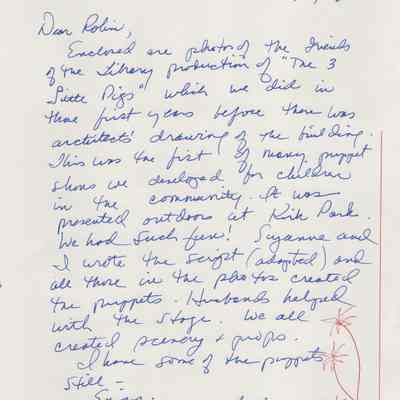 Dear Robin,
Enclosed are photos of the Friends
of the Library production of "The 3
Little Pigs" which we did in
those first years before there was
architects drawing of the building.
This was the first of many puppet
shows we developed for children
in the community. It was
presented outdoors at Kirk Park.
We had such fun! Suzanne and
I wrote the script (adapted) and
all those in the photos created
the puppets. Husbands helped
with the stage. We all
created scenery & props.
I have some of the puppets
still –